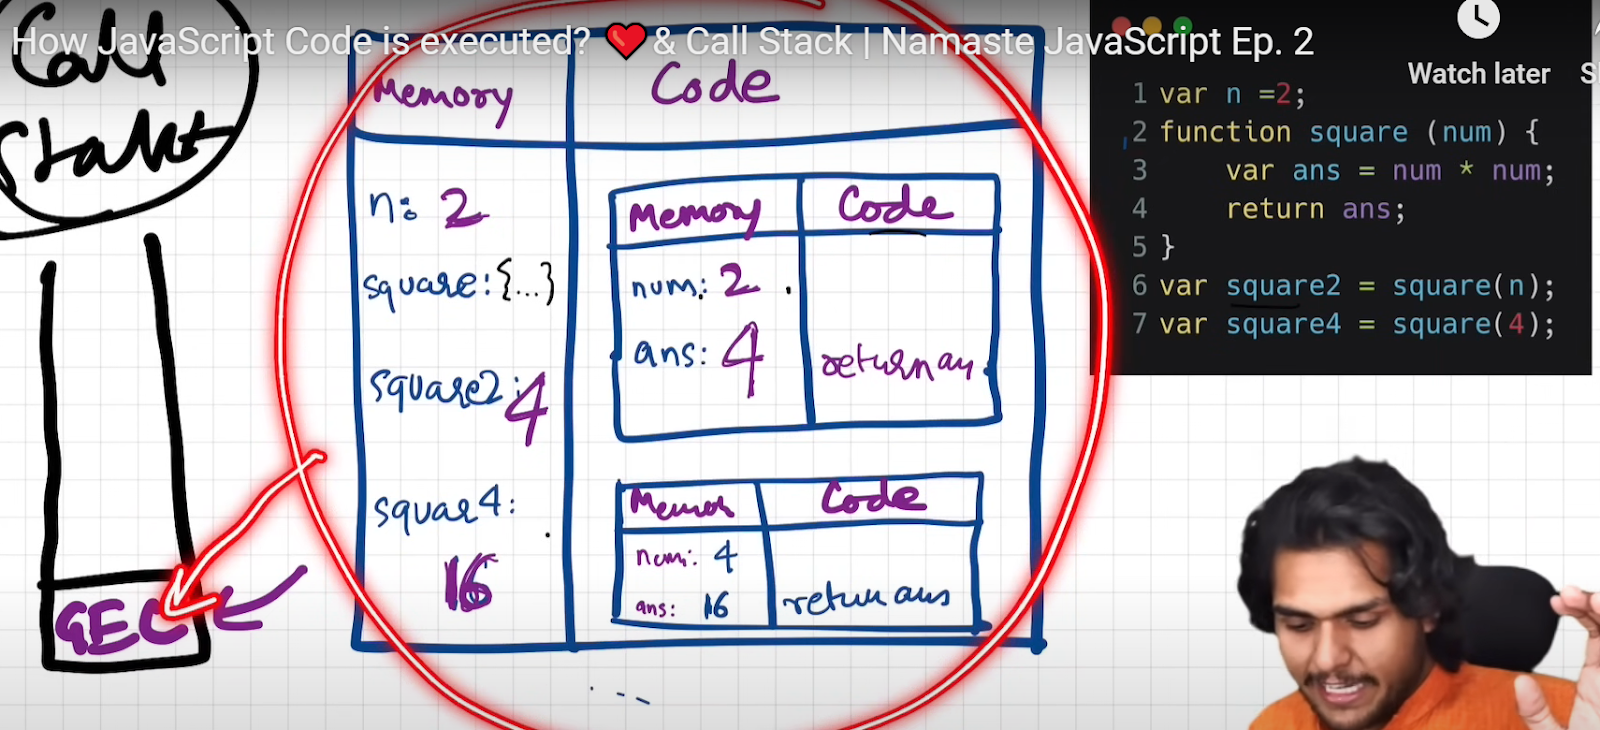 How JavaScript Code is executed? ❤️& Call Stack | Namaste JavaScript Ep. 2
Watch later
Call
Memory
Code
n: 2
square: {...}
square2: 4
squar4:
16
Memory
Code
num: 2
ans: 4
return an
Code
num: 4
ans: 16
return ans
GEC
1 var n =2;
2 function square (num) {
3 var ans = num * num;
4 return ans;
5 }
6 var square2 = square(n);
7 var square4 = square(4);